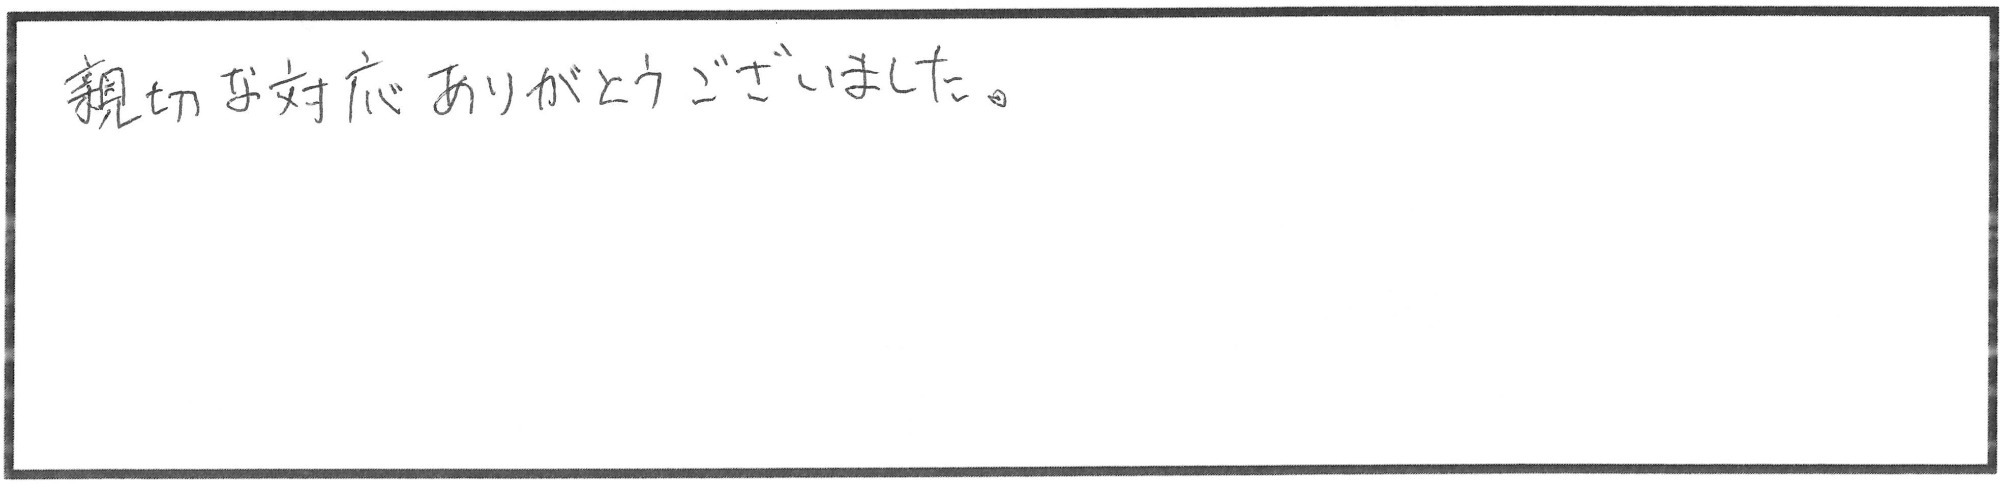 親切な対応ありがとうございました。